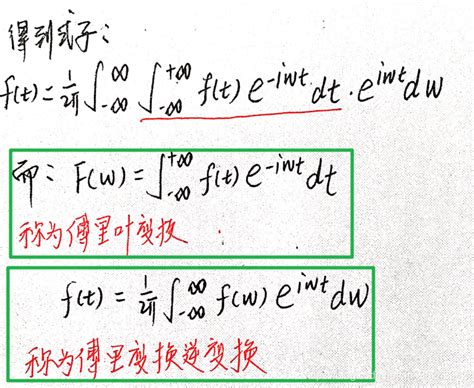 得到式子:
f(t)=1/2π∫_{-∞}^{∞}∫_{-∞}^{+∞} f(t) e^{-iwt} dt · e^{iwt} dw
而: F(w)=∫_{-∞}^{+∞} f(t) e^{-iwt} dt
称为傅里叶变换
f(t) = 1/2π∫_{-∞}^{∞} f(w) e^{iwt} dw
称为傅里变换逆变换